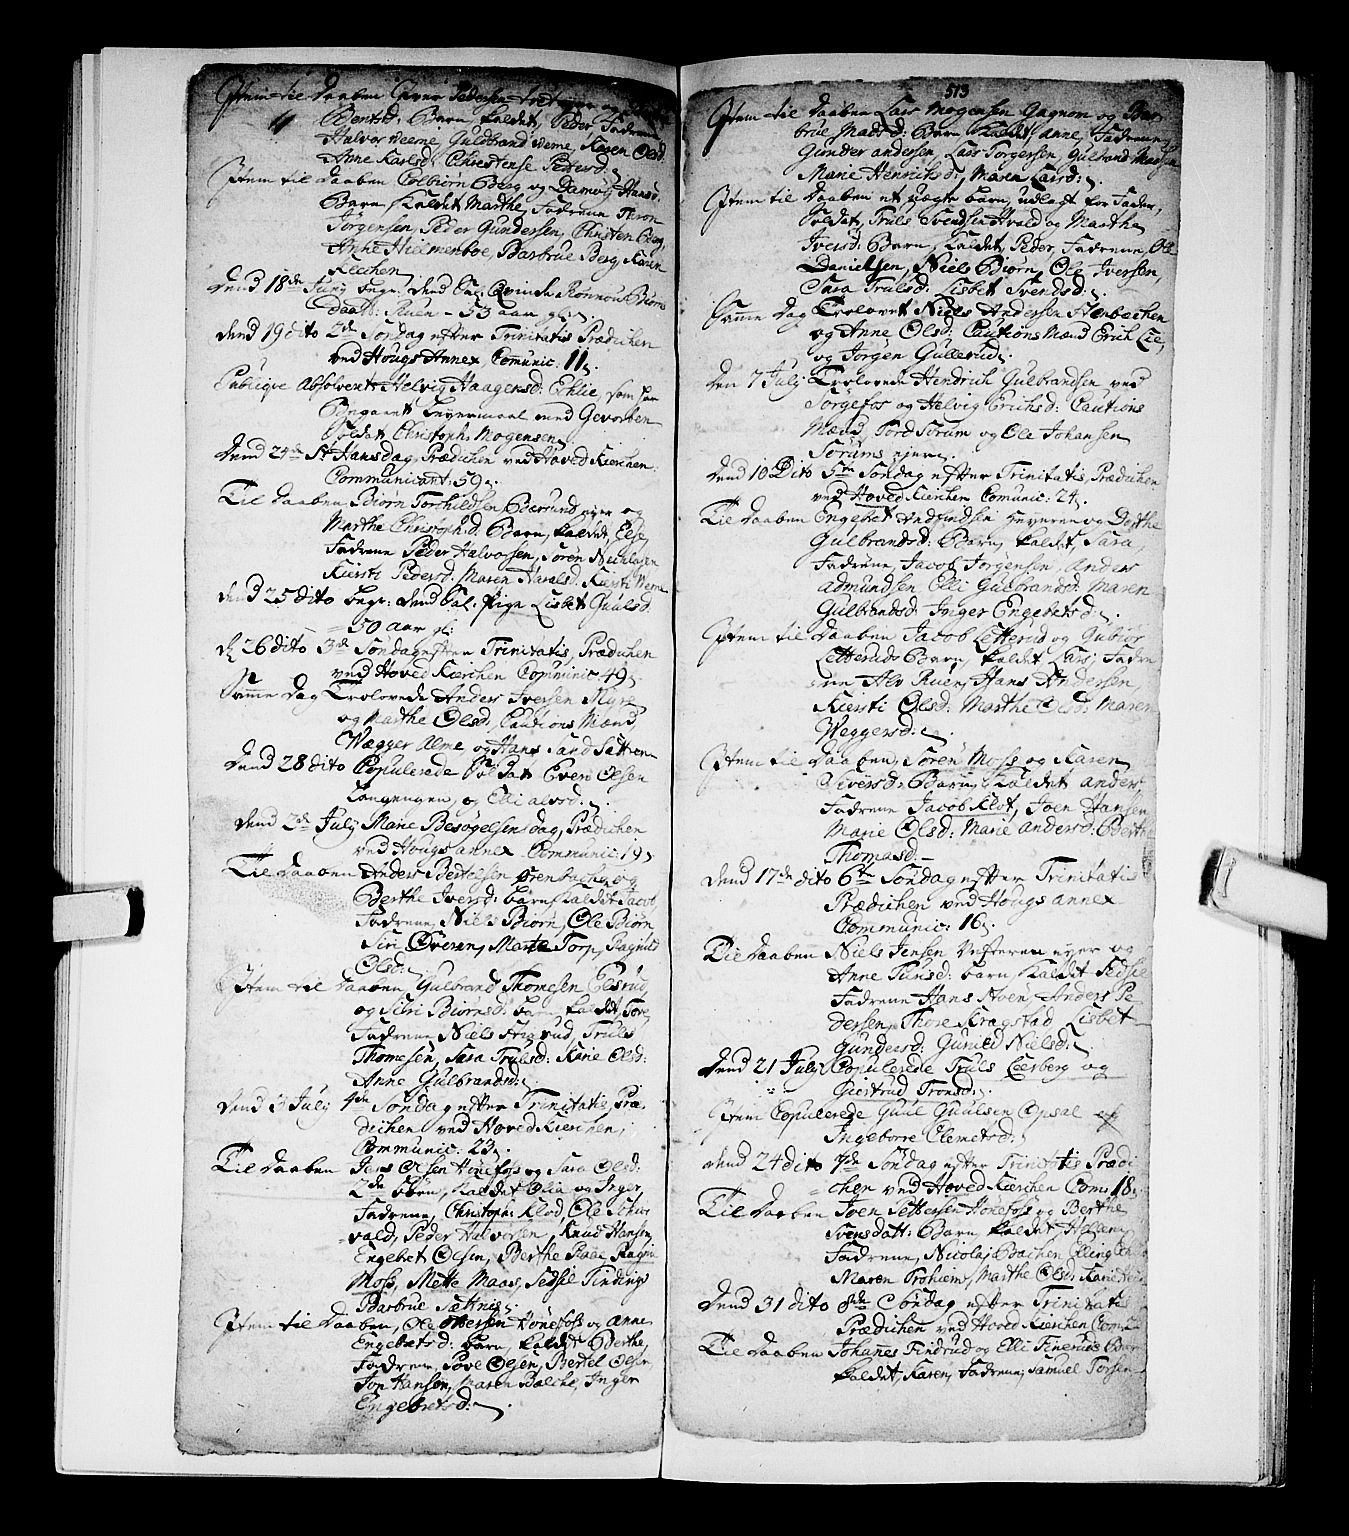 Item til Daaben Pedersen og
Bentsd: Barn, kaldet, Peder Fadrene
Halvor Veeme, Guldbrand Veme, Karen Olsd
Anne Karlsd: Christense Pedersd:
Item til Daaben Colbiørn Berg og Hansd:
Barn, kaldet Marthe, Fadrene Thron
Jørgensen, Peder Gundersen, Christen Berg
Anne Hielmenboe, Barbrue Berg, Karen
Kierchen
Dend 18de Juny begr: dend Sal. Qvinde Rønnou Biørns
Daatt: Ruen - 53 aar gl:
dend 19 dito 2de Søndag efter Trinitatis Prædichen
ved Hougs Annex, Communic: 11.
Publiqve Absolvent Helvig Haagensd: Ehlie, som har
Begaaet Leyermaal med Gevorben
Soldat Christoph: Mogensen
Dend 24de St Hansdag, Prædichen ved Hoved Kierchen:
Communicant: 59.
Til Daaben Biørn Torchildsen Børsund ejer og
Marthe Christophd: Barn, kaldet, Else,
Fadrene Peder Halvorsen, Søren Nichlasen
Kiersti Pedersd: Maren Haralsd: Kiersti Veme
dend 25 dito begr: dend Sal. Pige Lisbet Guulsd:
50 aar gl:
d 26 dito 3de Søndag efter Trinitatis, Prædichen
ved Hoved Kierchen Communic: 49.
Samme Dag Trolovede Anders Iversen Myre
og Marthe Olsd: Cautions Mænd,
Vægger Alme og Hans Sand Sættren
Dend 28 dito Copulerede Soldat Even Olsen
Langengen, og Elli Alvsd:
dend 2de July Marie Besøgelsens dag, Prædichen
ved Hougs annex Communic: 19.
Til Daaben Anders Bertelsen og
Berthe Iversd: barn kaldet Jacob
Fadrene, Niels Biørn, Ole Biørn
Siri Overen, Marte Torp, Ragnild
Olsd:
Item til Daaben Gulbrand Thomesen Elsrud
og Silvi Biørnsd: barn kaldet Tore
Fadrene Niels Strigrud, Truls
Thomesen, Sara Trulsd: Karie Olsd:
Anne Gulbrandsd:
Dend 3 July 4de Søndag efter Trinitatis, Præ-
dichen ved Hoved Kierchen,
Communic: 23.
Til Daaben Jens Olsen Hønefoss og Sara Olsd:
2de børn, kaldet Olia og Inger
Fadrene, Christoph: Klod, Ole Schur
vald, Peder Halvorsen, Knud Hansen,
Engebet Olsen, Berthe Ragne
Moss, Mette Maas, Sedsel Tindings
Barbrue Sætning.
Item til Daaben, Ole Hønefoss og Anne
Engebetsd: barn, kaldet Berthe,
Fadrene, Sove Olsen, Bertel Olsen
Jon Hansen, Maren Balche, Inger
Engebretsd:
513
Item til Daaben Lars Mogensen Gagnom og Bar-
brue Madsd: Barn kaldet, Anne, Fadrene
Gunder Andersen, Lars Torgersen, Gulbrand
Marie Henrichsd, Maren Larsd:
Item til Daaben et uægte barn, udlagt for Fader,
Soldat, Truls Svendsen Hvald og Marthe
Iversd: Barn, kaldet, Peder, Fadrene, Ole
Danielsen, Niels Biørn, Ole Iversen,
Sara Trulsd: Lisbet Svendsd:
Samme Dag Trolovet Niels Andersen Stenbachen
og Anne Olsd: Cautions Mænd Erich Lie,
og Jørgen Gullerud.
den 7 July Trolovede Hendrich Gulbrandsen ved
Sørgefos og Helvig Erichsd: Cautions
Mænd, Tord Sørum og Ole Johansen
Sørums ejere
Dend 10 Dito 5te Søndag efter Trinitatis, Prædichen
ved Hoved Kierchen Comunic: 24.
Til Daaben Engebet Andfindsen Heveren og Dorthe
Gulbrandsd: Barn, kaldet, Sara,
Fadrene, Jacob Jørgensen, Anders
Admundsen Elli Gulbrandsd: Maren
Gulbrandsd: Inger Engebetsd:
Item til Daaben Jacob Letterud og Gubiør
Letteruds Barn, kaldet Lars, Fadre
ne Alv Ruen, Hans Andersen
Kiersti Olsd: Marthe Olsd: Maren
Weggersd:
Item til Daaben, Søren Moss og Karen
Siversd: Barn, kaldet Anders,
Fadrene Jacob Klot, Joen Hansen,
Marie Olsd: Marie Andersd: Berthe
Thomasd:
Dend 17de dito 6te Søndag efter Trinitatis
Prædichen ved Hougs annex
Communic: 16.
Til Daaben Niels Jensen Vesteren ejer og
Anne Tunsd: barn, kaldet Sedsel
Fadrene Hans Hoen, Anders Pe-
dersen, Thore Kragstad, Lisbet
Gundersd: Guriød Nielsd:
Dend 21 July Copulerede Truls Leerberg og
Giertrud Tronsd:
Item Copulerede Guul Guulsen Opsal og
Ingeborre Clemetsd:
Dend 24 dito 7de Søndag efter Trinitatis Prædi
chen ved Hoved Kierchen Com: 18.
Til Daaben Joen Pettersen Hønefoss og Berthe
Svensdatt: Barn, kaldet Hellene
Fadrene, Nicolaj Bachen
Maren Trøhiem, Marthe Olsd: Karie
Dend 31 dito 8de Søndag efter Trinitatis
Prædichen ved Hoved Kierchen
Til Daaben Johanes Findrud og Elli Finruds Barn
kaldet Karen, Fadrene, Samuel Torsen